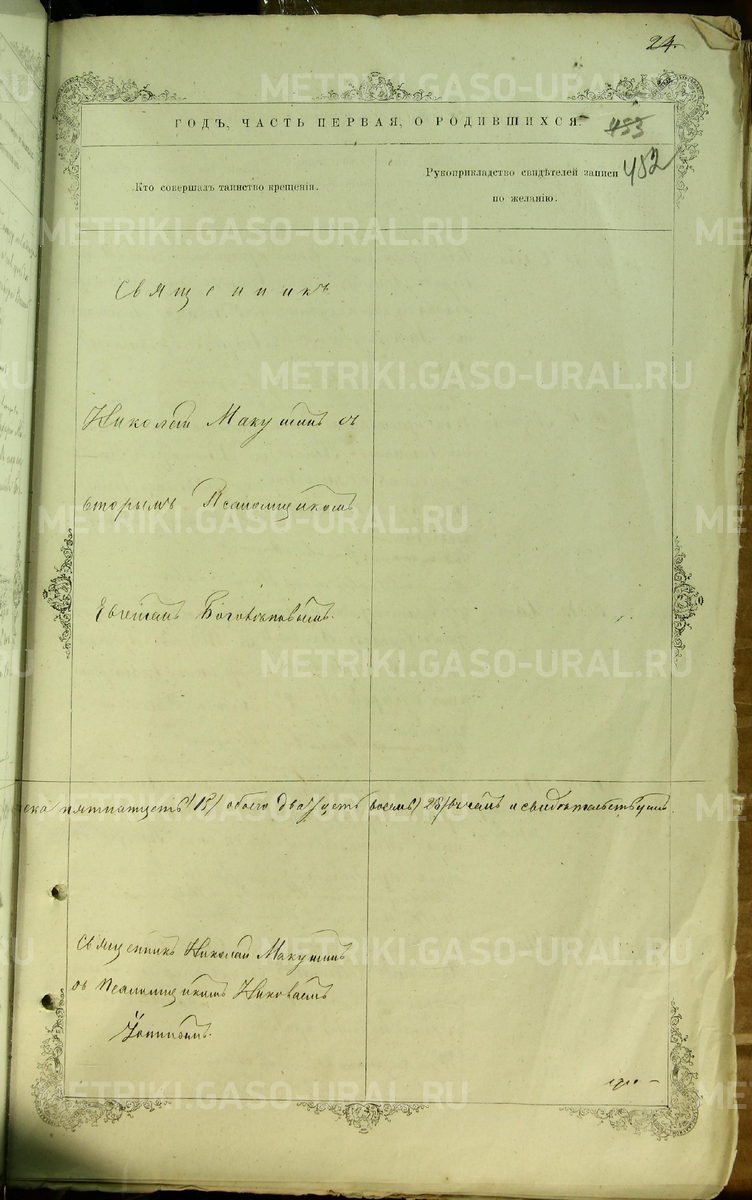 24.
ГОДЪ, ЧАСТЬ ПЕРВАЯ, О РОДИВШИХСЯ.
453
452
Кто совершалъ таинство крещенія.
Рукоприкладство свидѣтелей записи
по желанію.
Священникъ
Николай Макушинъ съ
вторымъ Псаломщикомъ
Богоявленскимъ.
ска пятнатцеть (15) обоего двадцеть восемь (28) человѣкъ и свидѣтельствуемъ
Священникъ Николай Макушинъ
съ Псаломщикомъ Николаемъ
METRIKI.GASO-URAL.RU
METRIKI.GASO-URAL.RU
METRIKI.GASO-URAL.RU
METRIKI.GASO-URAL.RU
METRIKI.GASO-URAL.RU
METRIKI.GASO-URAL.RU
METRIKI.GASO-URAL.RU
METRIKI.GASO-URAL.RU